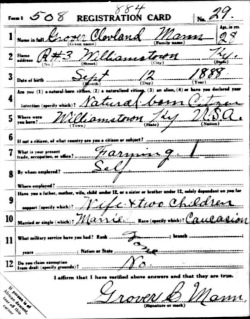 Form 1 508 884 REGISTRATION CARD No. 29
1 Name in full Grover Cleveland Mann Age, in yrs. 28
(Given name) (Family name)
2 Home address R#3 Williamstown Ky.
3 Date of birth Sept 12 1888
(Month) (Day) (Year)
4 Are you (1) a natural-born citizen, (2) a naturalized citizen, (3) an alien, (4) or have you declared your
intention (specify which)? Natural born Citizen
5 Where were you born? Williamstown Ky U.S.A.
(Town) (State) (Nation)
6 If not a citizen, of what country are you a citizen or subject?
7 What is your present trade, occupation, or office? Farming 1
8 By whom employed? Self
Where employed?
9 Have you a father, mother, wife, child under 12, or a sister or brother under 12, solely dependent on you for
support (specify which)? Wife & two Children
10 Married or single (which)? Married Race (specify which)? Caucasian
11 What military service have you had? Rank
years Nation or State
12 Do you claim exemption from draft (specify grounds)? No
I affirm that I have verified above answers and that they are true.
Grover C Mann